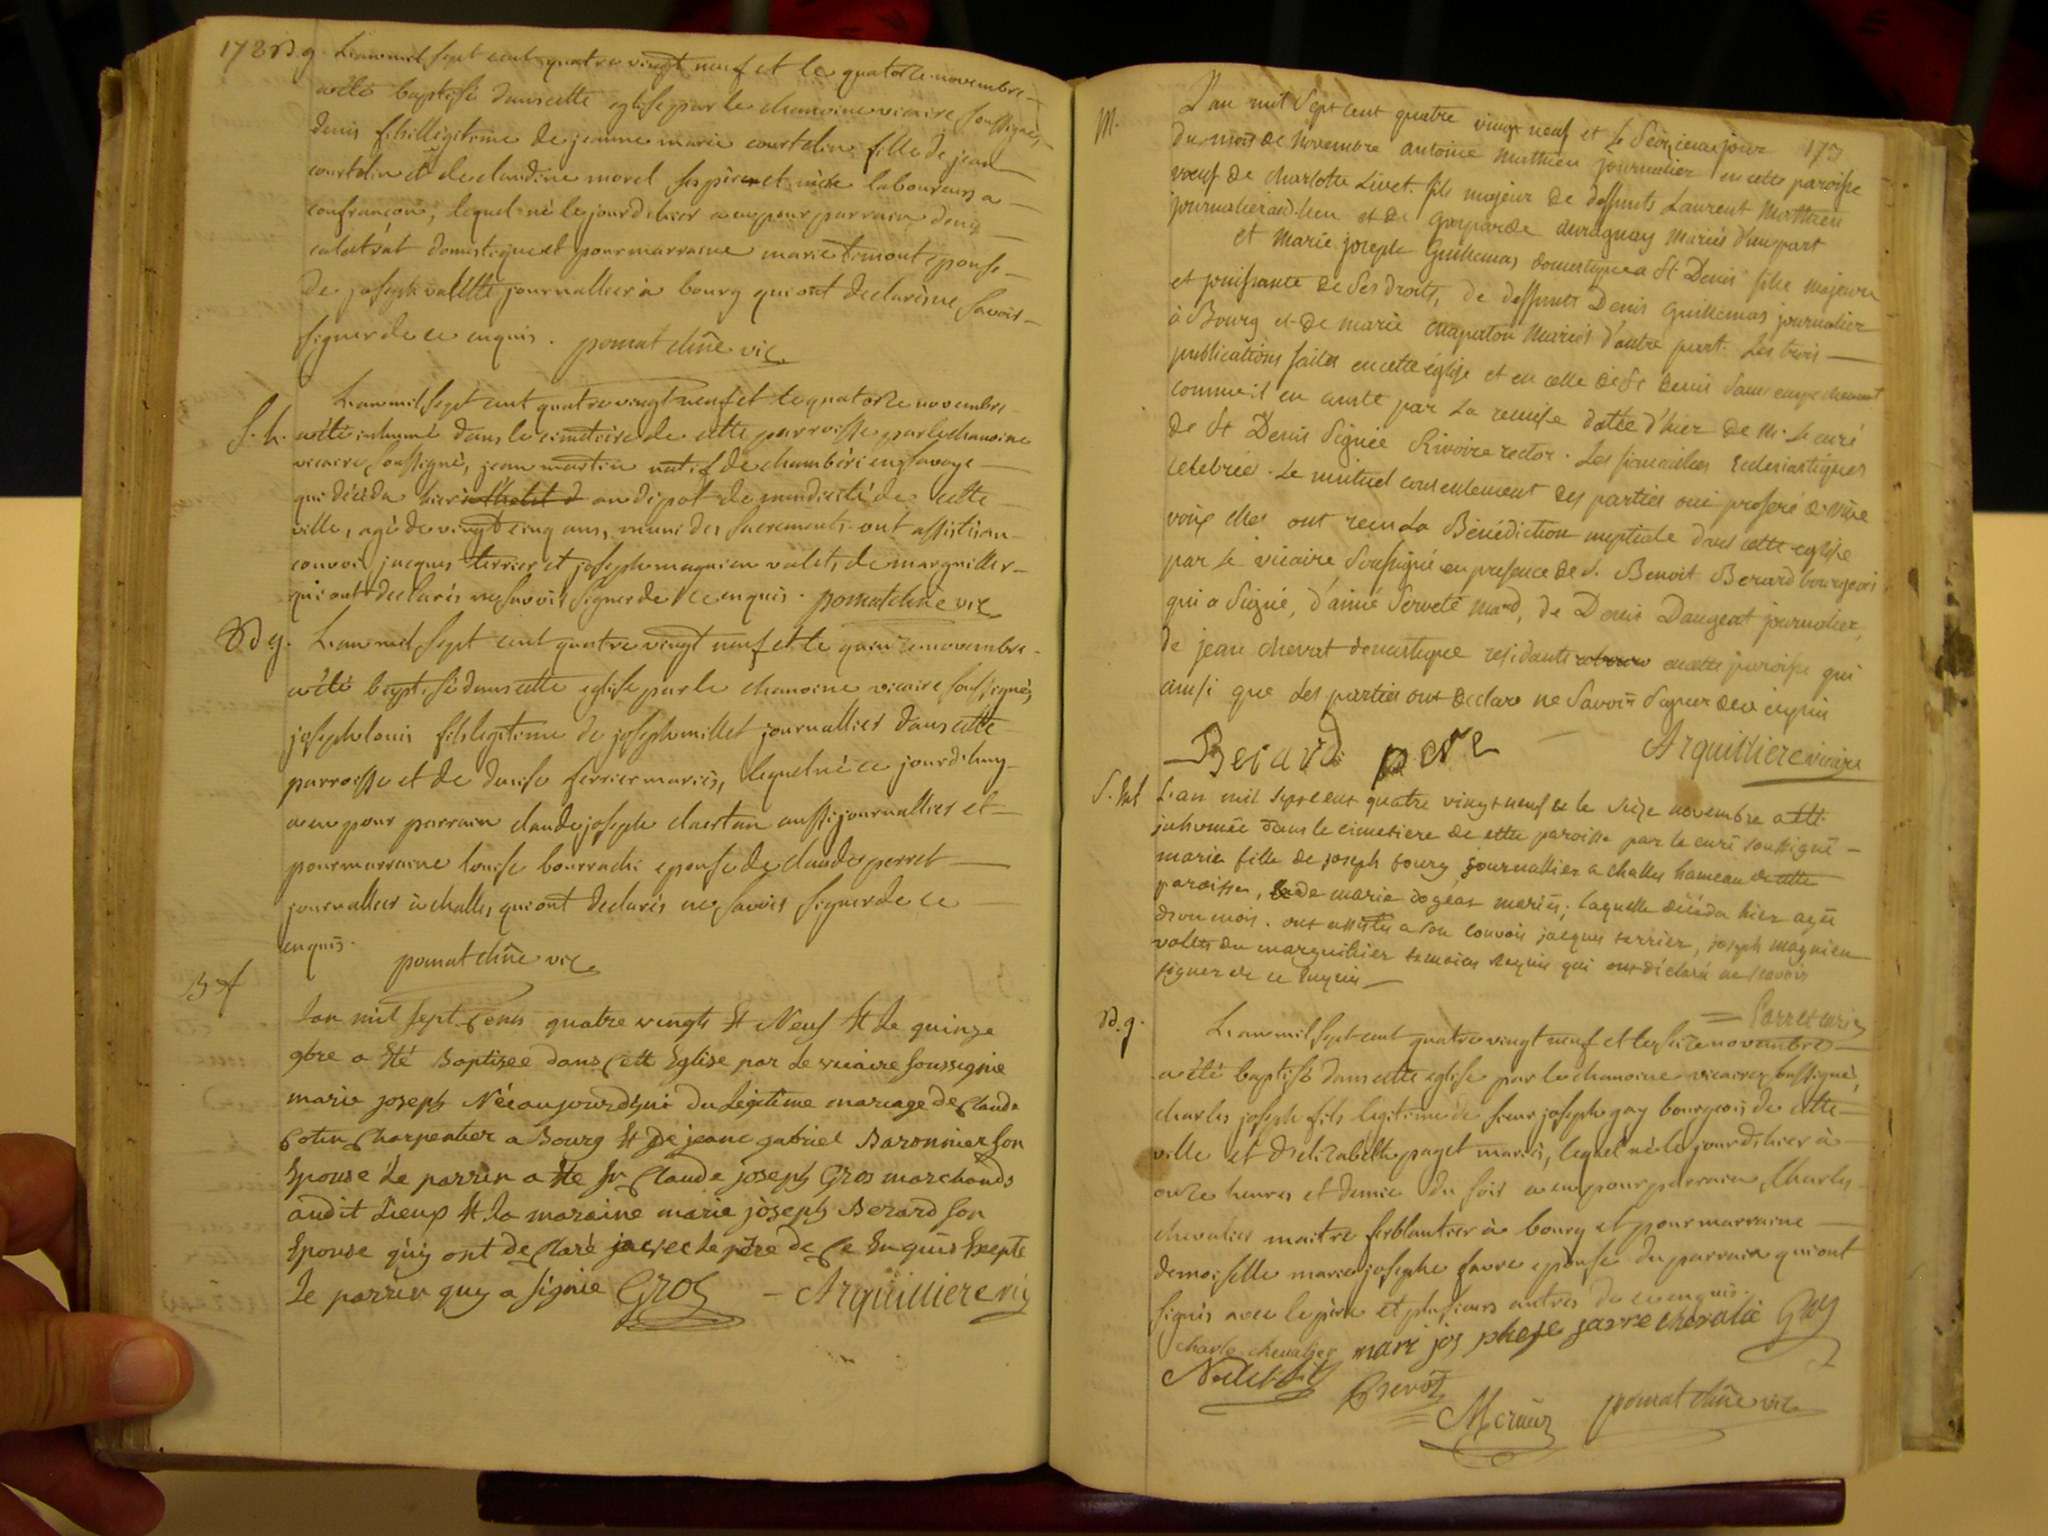 172 B. g. L'an mil sept cent quatre vingt neuf et le quatorze novembre
a été baptisé dans cette eglise par le chanoine vicaire soussigné,
denis fils illégitime de jeanne marie courtelin fille de jean
courtelin et de claudine morel ses père et mère laboureurs a
confrançon, lequel né le jour d'hier a eu pour parrain denis
domestique et pour marraine marie épouse
de joseph valette journallier à bourg qui ont declarés ne savoir
signer de ce enquis. pomat chñe vic
S. h. L'an mil sept cent quatre vingt neuf et le quatorze novembre
a été inhumé dans le cimetière de cette parroisse par le chanoine
vicaire soussigné, jean martin natif de chambéri en savoye
qui décéda hier au dépot de mendicité de cette
ville, agé de vingt cinq ans, muni des sacrements. ont assisté au
convoi jacques terrier et joseph magnien valets de marguiller
qui ont declarés ne savoir signer de ce enquis. pomat chñe vic
B. g. L'an mil sept cent quatre vingt neuf et le quinze novembre
a été baptisé dans cette eglise par le chanoine vicaire soussigné,
joseph louis fils legitime de joseph millet journallier dans cette
parroisse et de denise ferrier mariés, lequel né ce jourd'huy
a eu pour parrain claude joseph aussi journallier et
pour marraine louise épouse de claude perret
journallier à challes, qui ont declarés ne savoir signer de ce
enquis.
pomat chñe vic
B f
Lan mil sept Cens quatre vingts Et Neuf Et Le quinze
9bre a Eté Baptisee dans Cette Eglise par Le vicaire soussignie
marie joseph Née aujourd'hui du Legitime mariage de Claude
Cotin Charpentier a Bourg Et De jeane gabriel Baronnier son
Epouse Le parrin a Ete Sr Claude joseph Gros marchands
audit Lieux Et la maraine marie joseph Berard son
Epouse quy ont declaré avec le père de Ce Enquis Excepte
Le parrin quy a signie Gros Arquilliere vic
M. L'an mil sept cent quatre vingt neuf et le seizieme jour 173
du mois de novembre antoine Mathieu journalier en cette paroisse
veuf de charlotte Livet. fils majeur de deffunts Laurent Mathieu
journalier audit lieu et de Gasparde duraguay Mariés d'une part
et Marie joseph Guillemas domestique a St Denis fille majeure
et jouissante de ses droits, de deffunts Denis Guillemas journalier
à Bourg et de marie Mariés d'autre part. Les trois
publications faites en cette église et en celle de St Denis sans empechement
comme il en conste par La remise datée d'hier de Mr Le curé
de St Denis signée Rivoire rector. Les fiancailles Ecclesiastiques
celebrée. Le mutuel consentement des parties oui proferé de vive
voix elles ont recu La Bénédiction nuptiale dans cette eglise
par le vicaire soussigné en presence de S. Benoit Berard bourgeois
qui a signé, d'aimé Serveté Mard, de Denis Daugeat journalier,
de jean chevrat domestique residants en cette paroisse qui
ainsi que Les parties ont declaré ne savoir signer de ce enquis
Berard pere Arquilliere vicaire
S. L'an mil sept cent quatre vingt neuf et le seize novembre a été
inhumée dans le cimetiere de cette paroisse par le curé soussigné
marie fille de joseph journallier a challes hameau de cette
paroisse, de marie mariés; laquelle décéda hier agée
d'un mois. ont assistés a son convoi jacques terrier, joseph magnien
valets du marguillier temoins requis qui ont déclaré ne savoir
signer de ce enquis
curé
B. g. L'an mil sept cent quatre vingt neuf et le seize novembre
a été baptisé dans cette eglise par le chanoine vicaire soussigné,
charles joseph fils legitime de sieur joseph gay bourgeois de cette
ville et d'elizabeth paget mariés, lequel né le jour d'hier à
onze heures et demie du soir a eu pour parrain charles
chevalier maitre ferblantier à bourg et pour marraine
demoiselle marie josephe favre épouse du parrain qui ont
signés avec le père et plusieurs autres de ce enquis.
charle chevalier mari jos phe favre chevalie Gay
pomat chñe vic